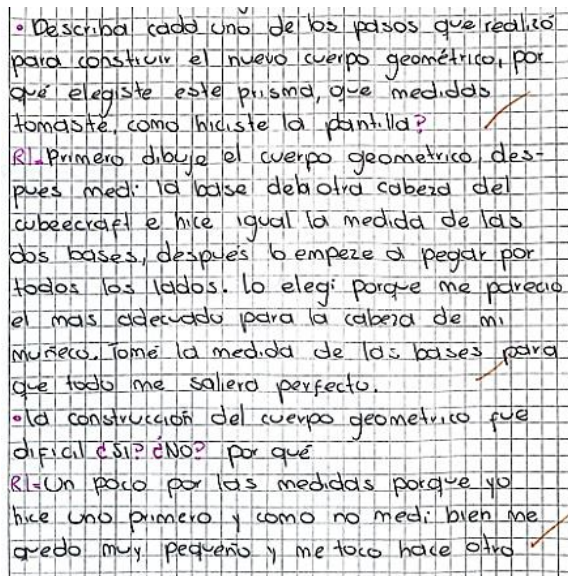 • Describa cada uno de los pasos que realizó
para construir el nuevo cuerpo geométrico, por
qué elegiste este prisma, que medidas
tomaste, como hiciste la plantilla?
R/= Primero dibuje el cuerpo geometrico, des-
pues medi la base de la otra cabeza del
cubeecraft e hice igual la medida de las
dos bases, después lo empeze a pegar por
todos los lados. Lo elegi porque me parecio
el mas adecuado para la cabeza de mi
muñeco. Tomé la medida de las bases para
que todo me saliera perfecto.
• la construcción del cuerpo geometrico fue
dificil ¿SI? ¿NO? por qué
R/= Un poco por las medidas porque yo
hice uno primero y como no medi bien me
quedo muy pequeño y me toco hace otro